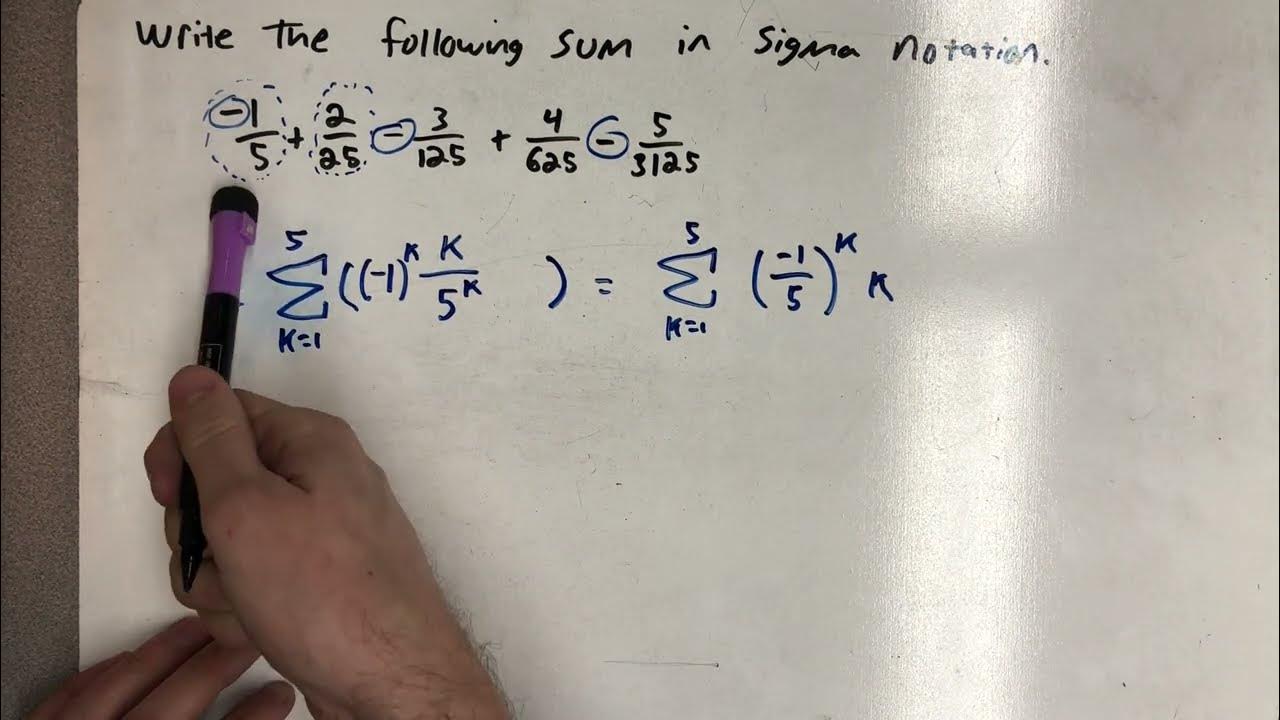 Write The following sum in sigma notation.
-1/5 + 2/25 - 3/125 + 4/625 - 5/3125
5∑K=1 ((-1)^K K/5^K ) = 5∑K=1 (-1/5)^K K